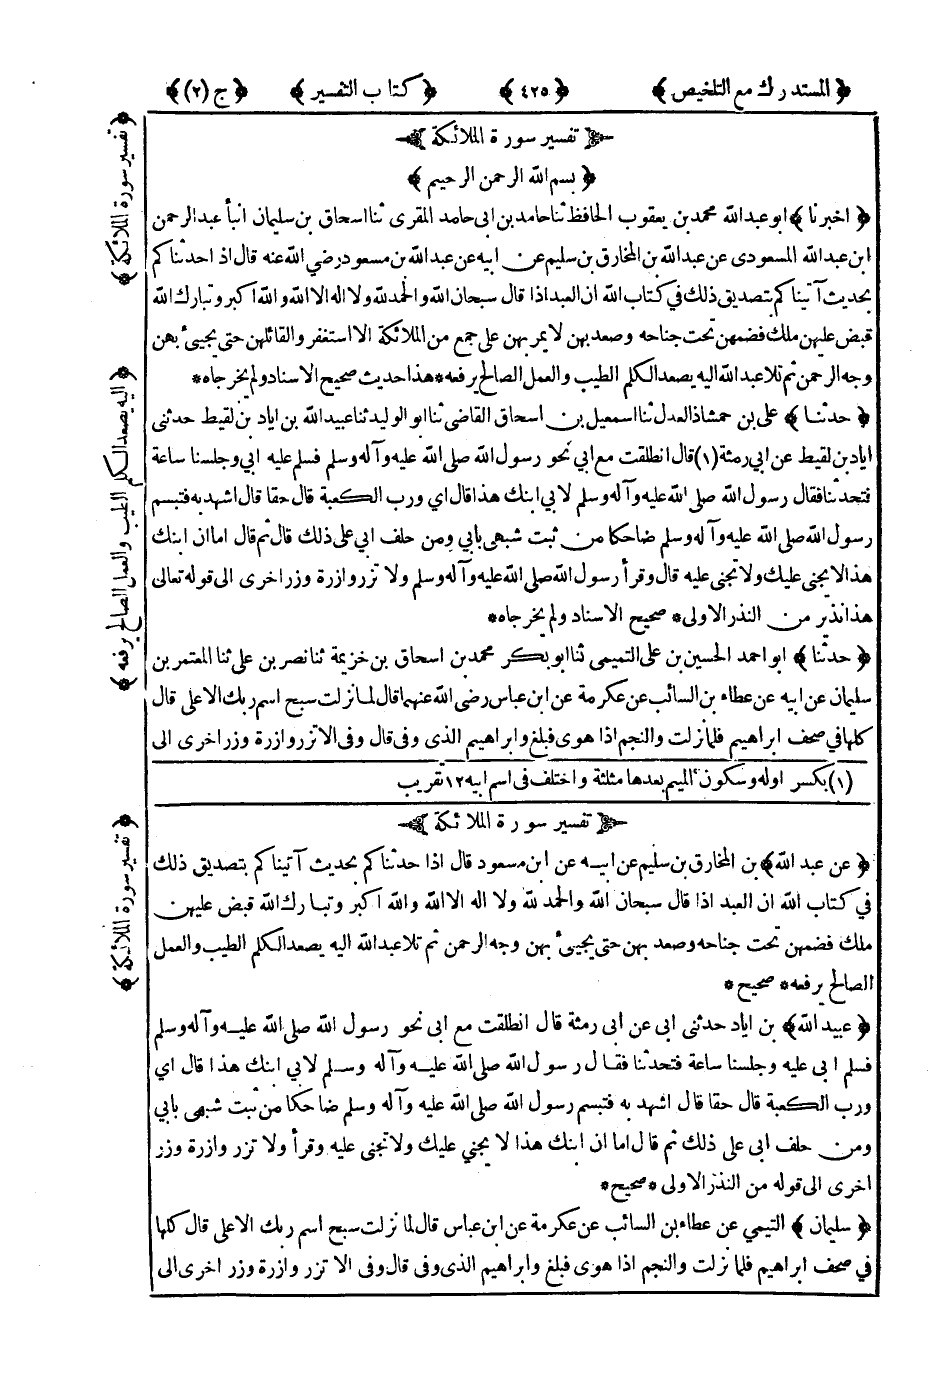 ﴿ المستدرك مع التلخيص ﴾ ﴿ ٤٢٥ ﴾ ﴿ كتاب التفسير ﴾ ﴿ ج (٢) ﴾
﴿ تفسير سورة الملائكة ﴾
﴿ بسم الله الرحمن الرحيم ﴾
﴿ اخبرنا ﴾ ابو عبدالله محمد بن يعقوب الحافظ ثنا حامد بن ابى حامد المقرى ثنا اسحاق بن سليمان انبأ عبدالرحمن
ابن عبدالله المسعودى عن عبدالله بن المخارق بن سليم عن ابيه عن عبدالله بن مسعود رضي الله عنه قال اذا حدثناكم
بحديث آتيناكم بتصديق ذلك في كتاب الله ان العبد اذا قال سبحان الله والحمد لله ولا اله الا الله والله اكبر وتبارك الله
قبض عليهن ملك فضمهن تحت جناحه وصعد بهن لا يمر بهن على جمع من الملائكة الا استغفر والقائلهن حتى يجيئ بهن
وجه الرحمن ثم تلا عبدالله اليه يصعد الكلم الطيب والعمل الصالح يرفعه * هذا حديث صحيح الاسناد ولم يخرجاه *
﴿ حدثنا ﴾ على بن حمشاذ العدل ثنا اسمعيل بن اسحاق القاضي ثنا ابو الوليد ثنا عبيد الله بن اياد بن لقيط حدثنى
اياد بن لقيط عن ابي رمثة (١) قال انطلقت مع ابي نحو رسول الله صلى الله عليه وآله وسلم فسلم عليه ابي وجلسنا ساعة
فتحدثنا فقال رسول الله صلى الله عليه وآله وسلم لابي ابنك هذا قال اي ورب الكعبة قال حقا قال اشهد به فتبسم
رسول الله صلى الله عليه وآله وسلم ضاحكا من ثبت شبهى بأبي ومن حلف ابي على ذلك قال ثم قال اما ان ابنك
هذا لا يجنى عليك ولا تجنى عليه قال وقرأ رسول الله صلى الله عليه وآله وسلم ولا تزر وازرة وزر اخرى الى قوله تعالى
هذا نذير من النذر الاولى * صحيح الاسناد ولم يخرجاه *
﴿ حدثنا ﴾ ابو احمد الحسين بن على التميمى ثنا ابو بكر محمد بن اسحاق بن خزيمة ثنا نصر بن على ثنا المعتمر بن
سليمان عن ابيه عن عطاء بن السائب عن عكرمة عن ابن عباس رضى الله عنهما قال لما نزلت سبح اسم ربك الاعلى قال
كلها في صحف ابراهيم فلما نزلت والنجم اذا هوى فبلغ وابراهيم الذى وفى قال وفى الا تزر وازرة وزر اخرى الى
(١) بكسر اوله وسكون الميم بعدها مثلثة واختلف فى اسم ابيه ١٢ تقريب
﴿ تفسير سورة الملائكة ﴾
﴿ عن عبد الله ﴾ بن المخارق بن سليم عن ابيه عن ابن مسعود قال اذا حدثناكم بحديث آتيناكم بتصديق ذلك
في كتاب الله ان العبد اذا قال سبحان الله والحمد لله ولا اله الا الله والله اكبر وتبارك الله قبض عليهن
ملك فضمهن تحت جناحه وصعد بهن حتى يجيئ بهن وجه الرحمن ثم تلا عبدالله اليه يصعد الكلم الطيب والعمل
الصالح يرفعه * صحيح *
﴿ عبيد الله ﴾ بن اياد حدثنى ابى عن ابى رمثة قال انطلقت مع ابى نحو رسول الله صلى الله عليه وآله وسلم
فسلم ابى عليه وجلسنا ساعة فتحدثنا فقال رسول الله صلى الله عليه وآله وسلم لابي ابنك هذا قال اي
ورب الكعبة قال حقا قال اشهد به فتبسم رسول الله صلى الله عليه وآله وسلم ضاحكا من ثبت شبهى بابي
ومن حلف ابى على ذلك ثم قال اما ان ابنك هذا لا يجني عليك ولا تجنى عليه وقرأ ولا تزر وازرة وزر
اخرى الى قوله من النذر الاولى * صحيح *
﴿ سليمان ﴾ التيمي عن عطاء بن السائب عن عكرمة عن ابن عباس قال لما نزلت سبح اسم ربك الاعلى قال كلها
في صحف ابراهيم فلما نزلت والنجم اذا هوى فبلغ وابراهيم الذى وفى قال وفى الا تزر وازرة وزر اخرى الى
﴿ تفسير سورة الملائكة ﴾
﴿ اليه يصعد الكلم الطيب والعمل الصالح يرفعه ﴾
﴿ تفسير سورة الملائكة ﴾